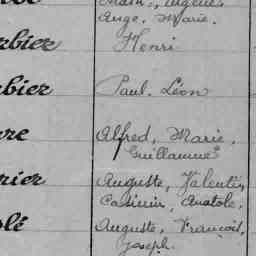 Ange, Marie.
rbier Henri
rbier Paul, Léon
rre Alfred, Marie,
Guillaume
rier Auguste, Valentin,
Casimir, Anatole,
olé Auguste, François,
Joseph.